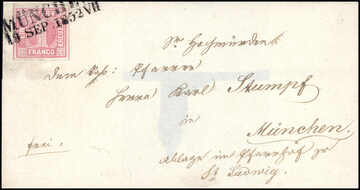 MÜNCHEN
14 SEP 1852 VII
FRANCO
Sr Hochwürden
dem
Herrn Karl Stumpf
in
München.
frei.
Ablage im Pfarrhof zu
St Ludwig.